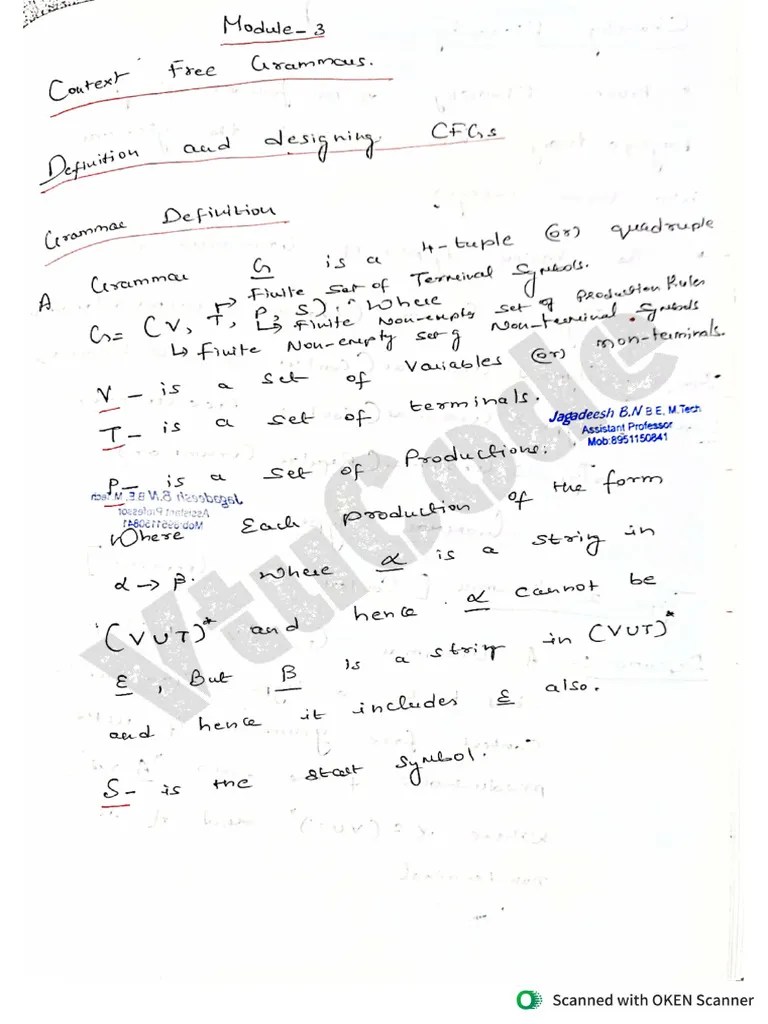 Module-3
Context Free Grammars.
Definition and designing CFGs
Grammar Definition
A Grammar G is a 4-tuple (or) quadruple
→ Finite set of Terminal Symbols.
G= (V, T, P, S), where
↳ Finite Non-empty set of Production Rules
↳ Finite Non-empty set of Non-terminal Symbols
V - is a set of variables (or) non-terminals.
T - is a set of terminals.
Jagadeesh B.N B.E, M.Tech
Assistant Professor
Mob:8951150841
P - is a set of Productions.
Where Each production of the form
α → β. Where α is a string in
(V∪T)* and hence α cannot be
ε, But β is a string in (V∪T)*
and hence it includes ε also.
S - is the start symbol.
VtuCode
Scanned with OKEN Scanner